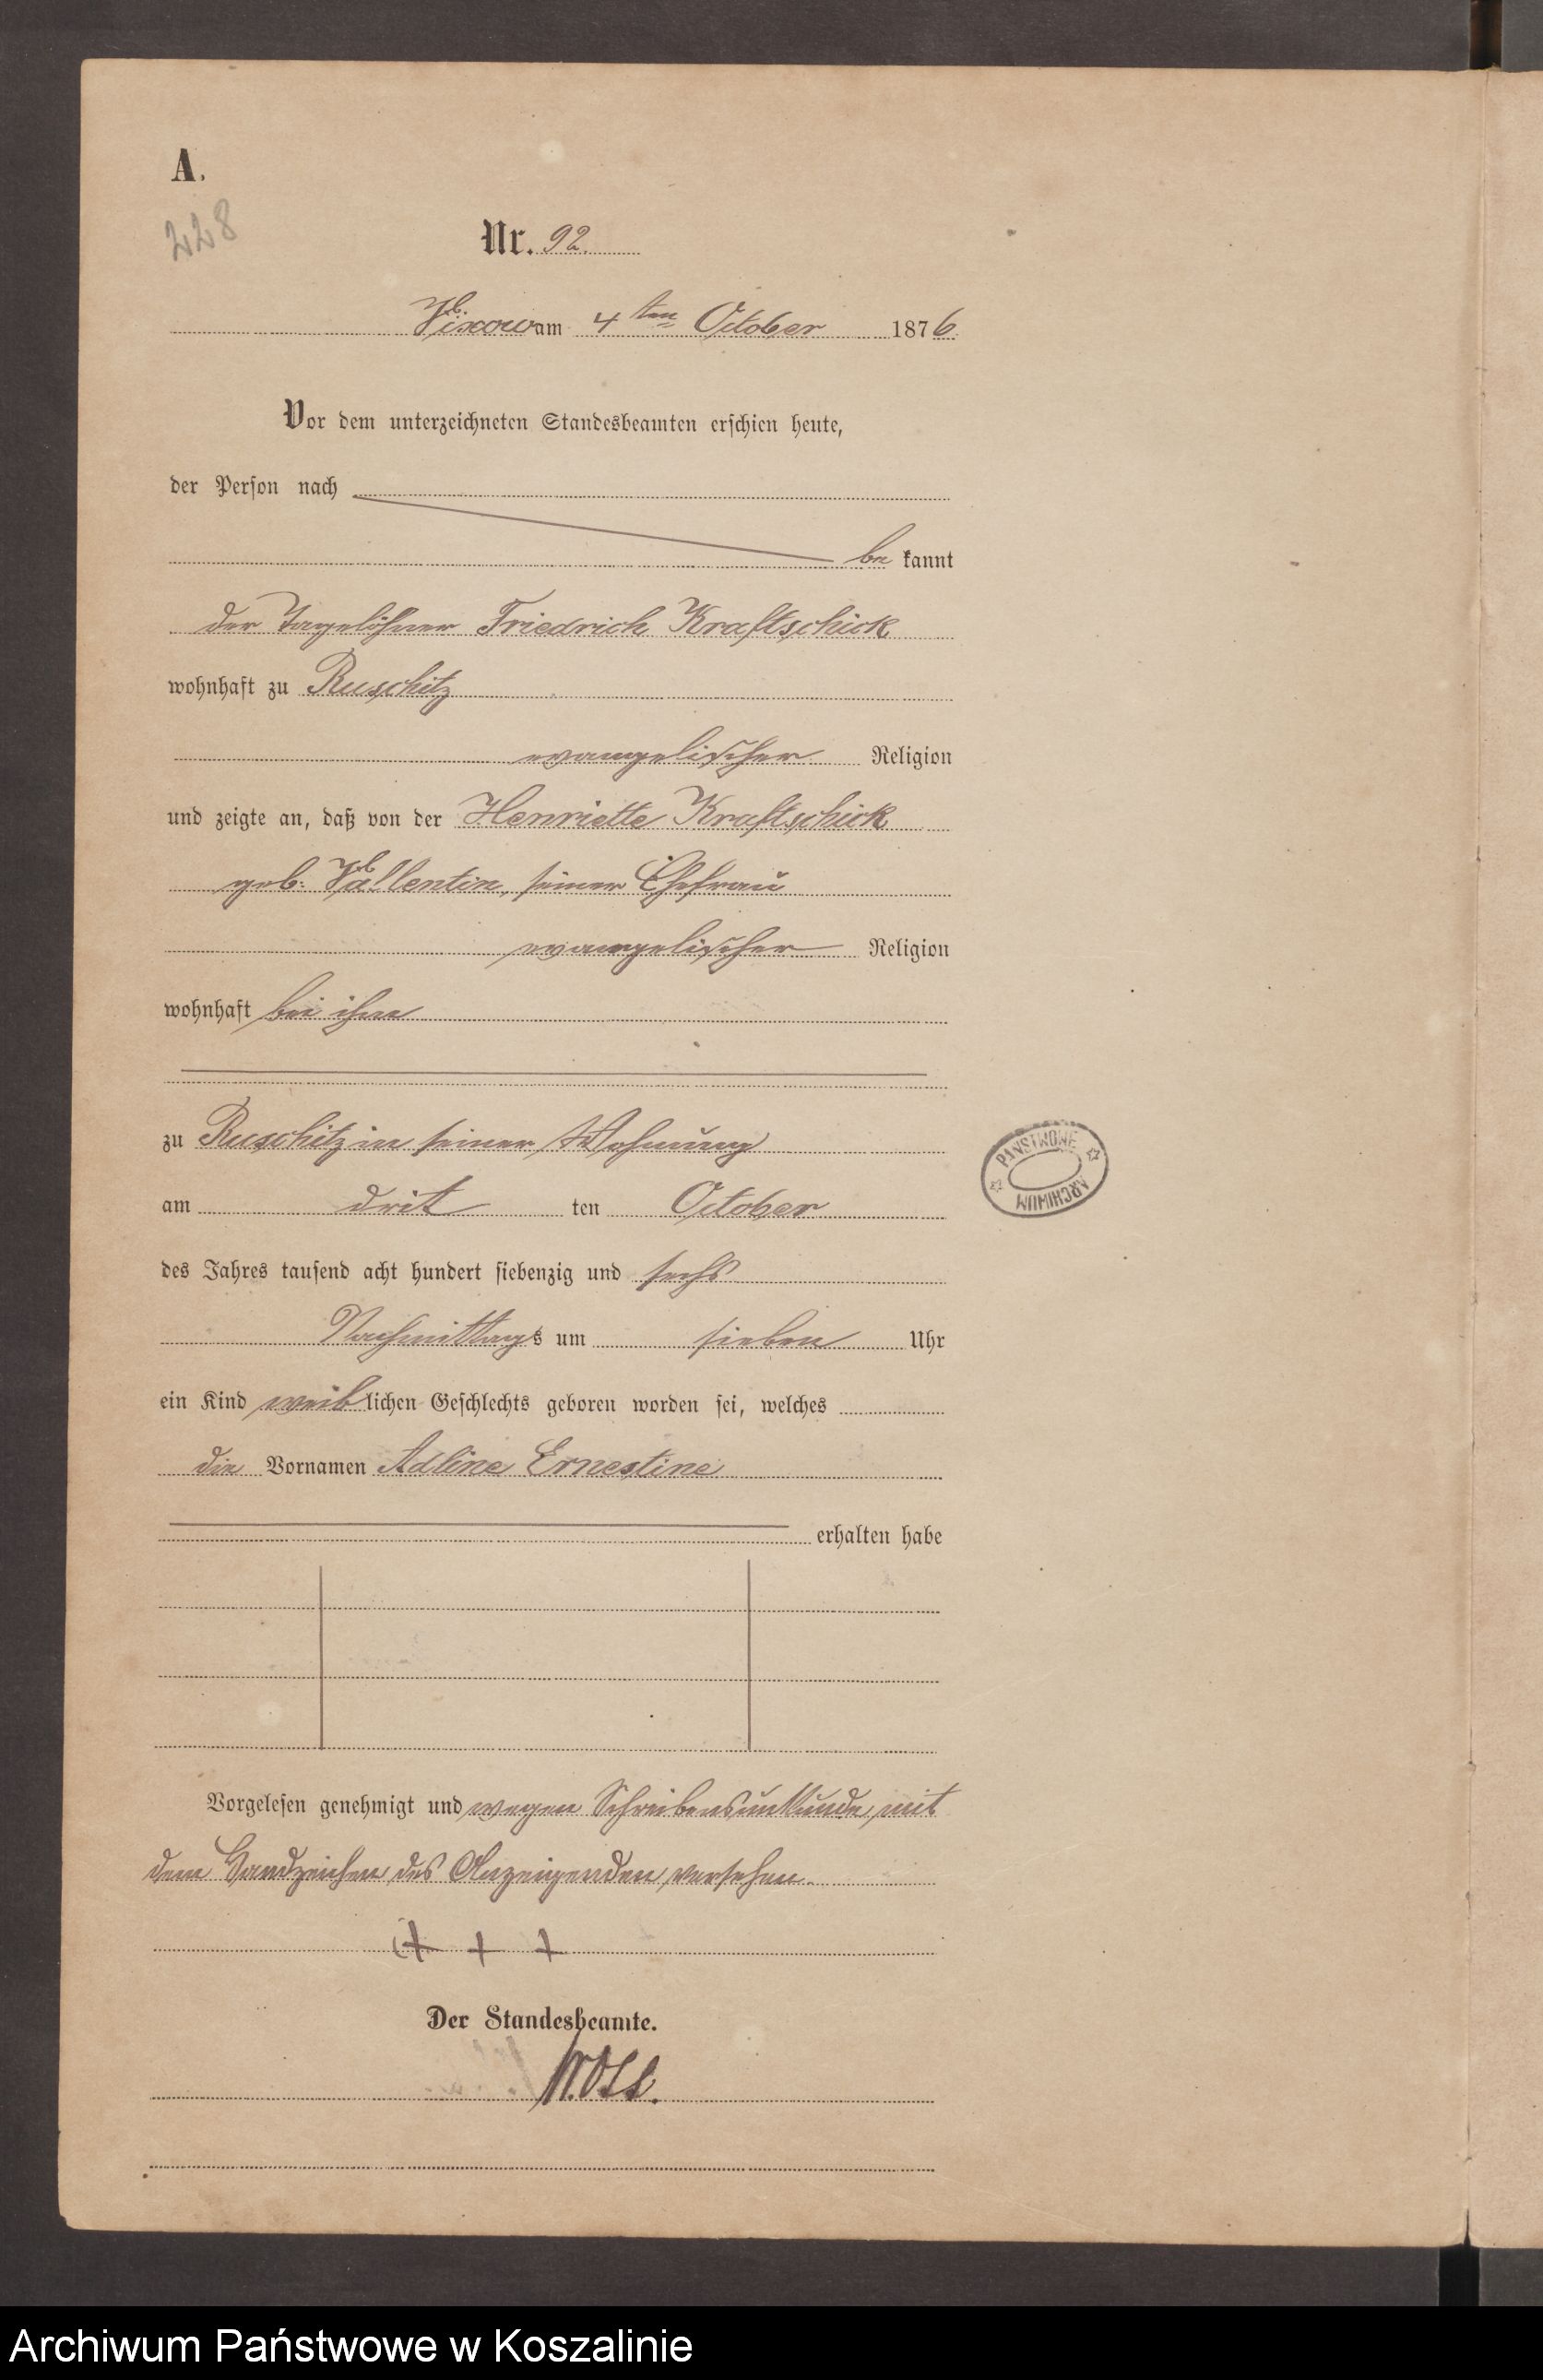 A.
228
Nr. 92.
Vixow am 4ten October 1876.
Vor dem unterzeichneten Standesbeamten erschien heute,
der Person nach
be kannt
der Tagelöhner Friedrich Kraftschick
wohnhaft zu Ruschitz
evangelischer Religion
und zeigte an, daß von der Henriette Kraftschick
geb: Vallentin, seiner Ehefrau
evangelischer Religion
wohnhaft bei ihm
zu Ruschitz in seiner Wohnung
am drit ten October
des Jahres tausend acht hundert siebenzig und sechs
Nachmittags um sieben Uhr
ein Kind weiblichen Geschlechts geboren worden sei, welches
die Vornamen Adline Ernestine
erhalten habe
Vorgelesen genehmigt und wegen Schreibensunkunde mit
dem Handzeichen des Anzeigenden versehen.
+ + +
Der Standesbeamte.
PAŃSTWOWE
ARCHIWUM
Archiwum Państwowe w Koszalinie